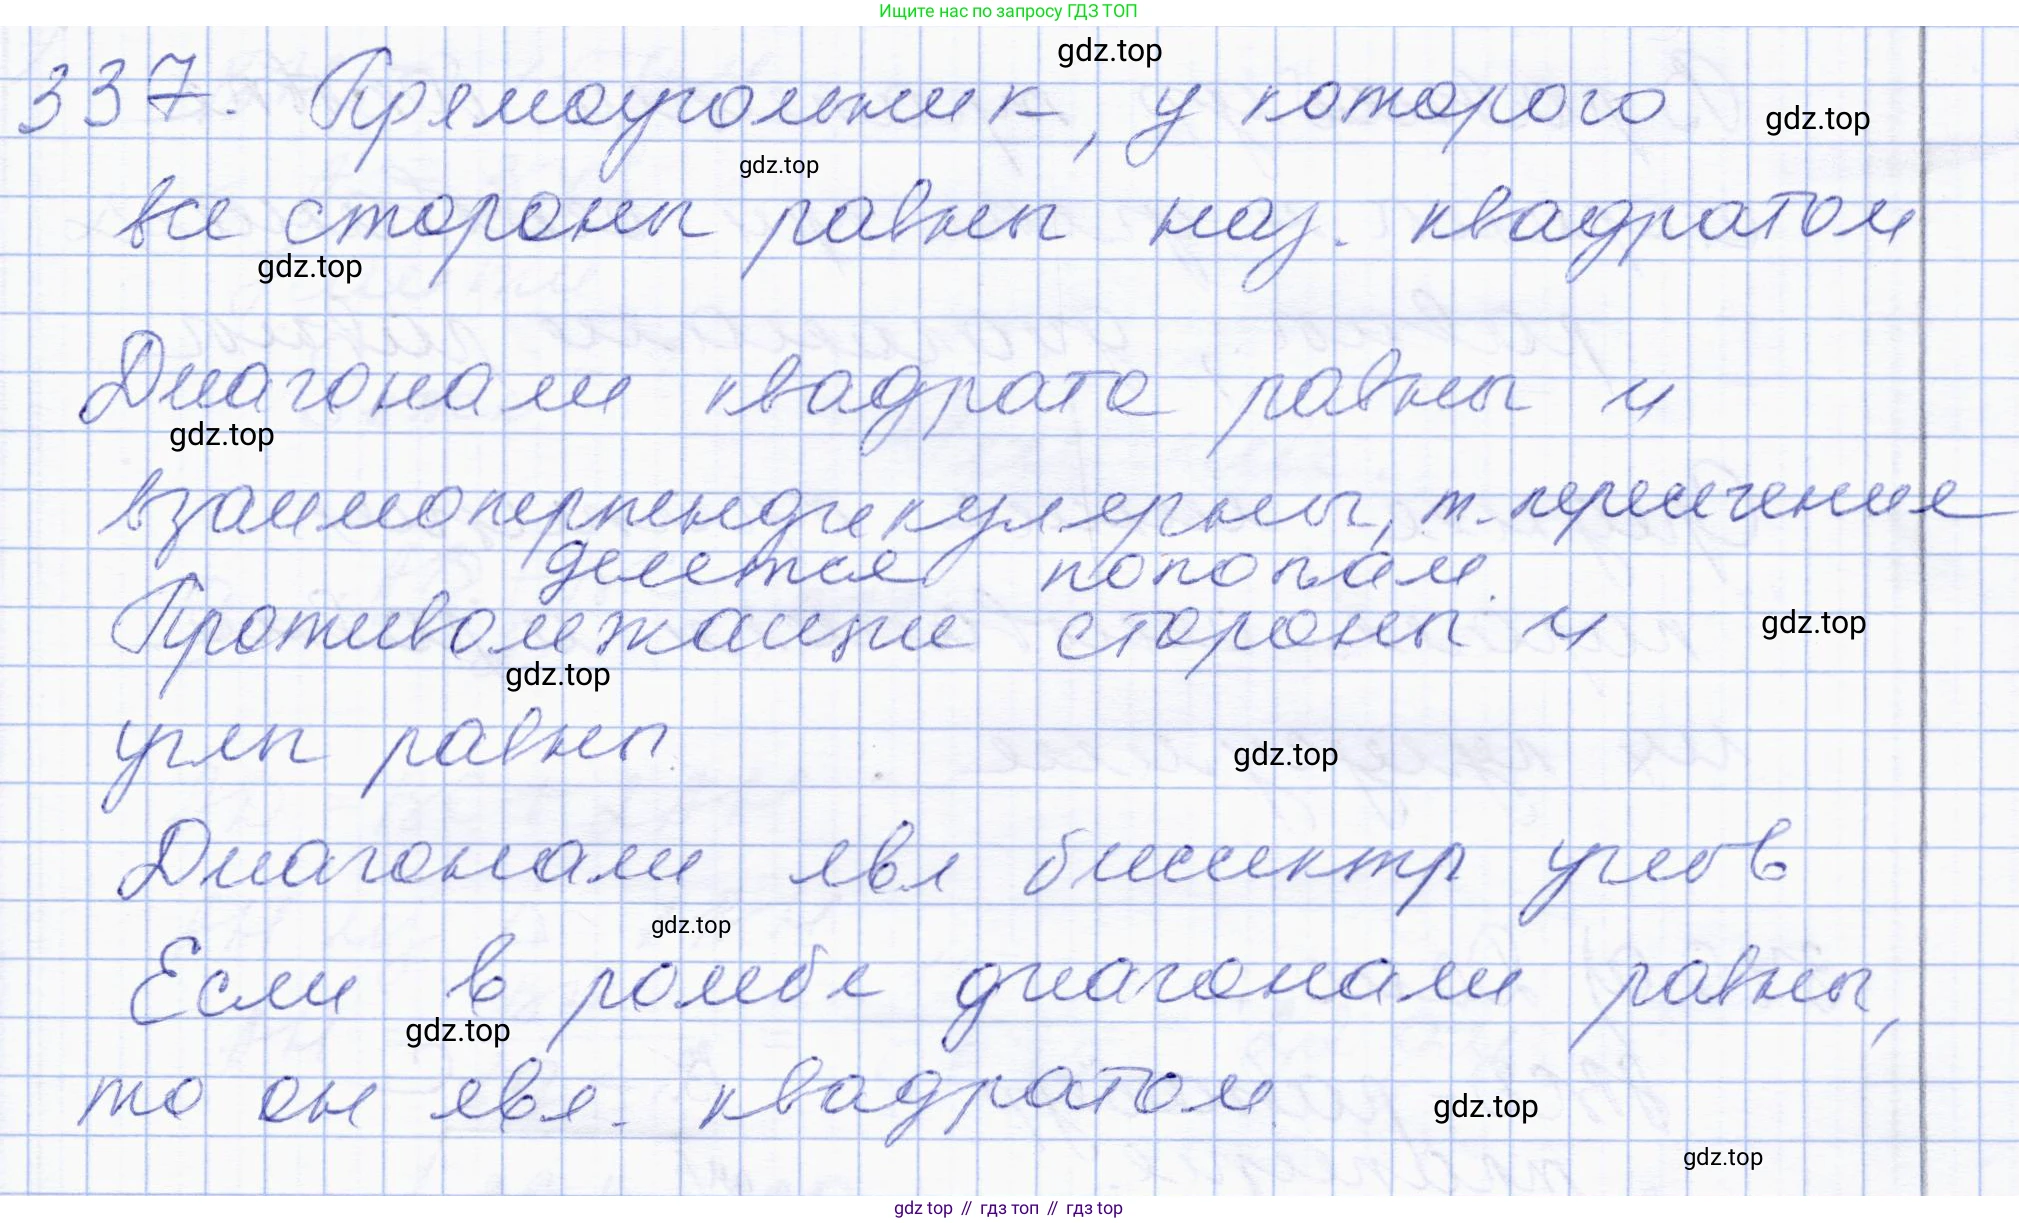 Ищите нас по запросу ГДЗ ТОП
gdz.top
337. Прямоугольник, у которого
gdz.top
gdz.top
все стороны равны наз. квадратом
gdz.top
Диагонали квадрата равны и
gdz.top
взаимоперпендикулярны, т. пересечения
делятся пополам.
Противолежащие стороны и
gdz.top
gdz.top
углы равны.
gdz.top
Диагонали явл биссектр углов
gdz.top
Если в ромбе диагонали равны,
gdz.top
то он явл. квадратом.
gdz.top
gdz.top
gdz top // гдз топ // гдз top